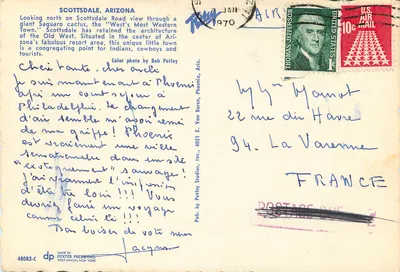 SCOTTSDALE, ARIZONA
Looking north on Scottsdale Road view through a
giant Saguaro cactus, the "West's Most Western
Town." Scottsdale has retained the architecture
of the Old West. Situated in the center of Ari-
zona's fabulous resort area, this unique little town
is a congregating point for Indians, cowboys and
tourists.
Color photo by Bob Petley
Chère tante, cher oncle
Je suis maintenant à Phoenix
après un court séjour à
Philadelphie. Le changement
d'air semble m'avoir remi
de ma grippe! Phoenix
est vraiment une ville
sensationnelle dans un site
"exotiquement" sauvage!
J'ai vraiment l'impression
d'être loin!!! Vous
devriez faire un voyage
comme celui là!!!
Bon baisers de votre neveu
Jacques
48083-C
dp
MADE BY
DEXTER PRESS, INC.
WEST NYACK, NEW YORK
Pub. by Petley Studios, Inc., 4051 E. Van Buren, Phoenix, Ariz.
JAN
1970
AIR
THOMAS JEFFERSON
1c
UNITED STATES
U.S.
AIR MAIL
10c
22 rue du Havre
94. La Varenne
FRANCE
POSTAGE DUE